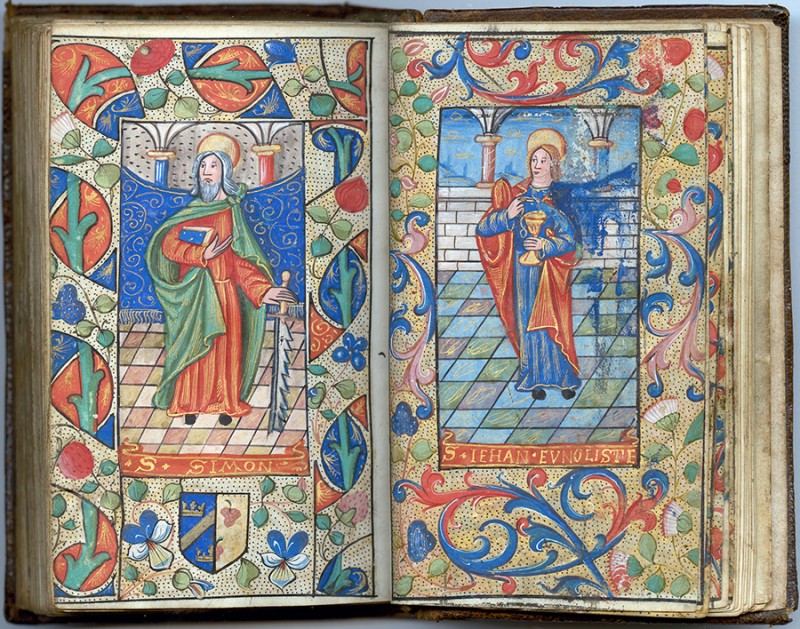 S · SIMON
S · IEHAN · EVNOLISTE